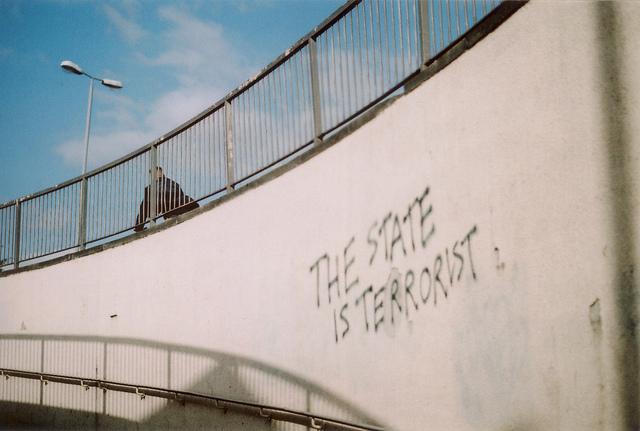 THE STATE
IS TERRORIST